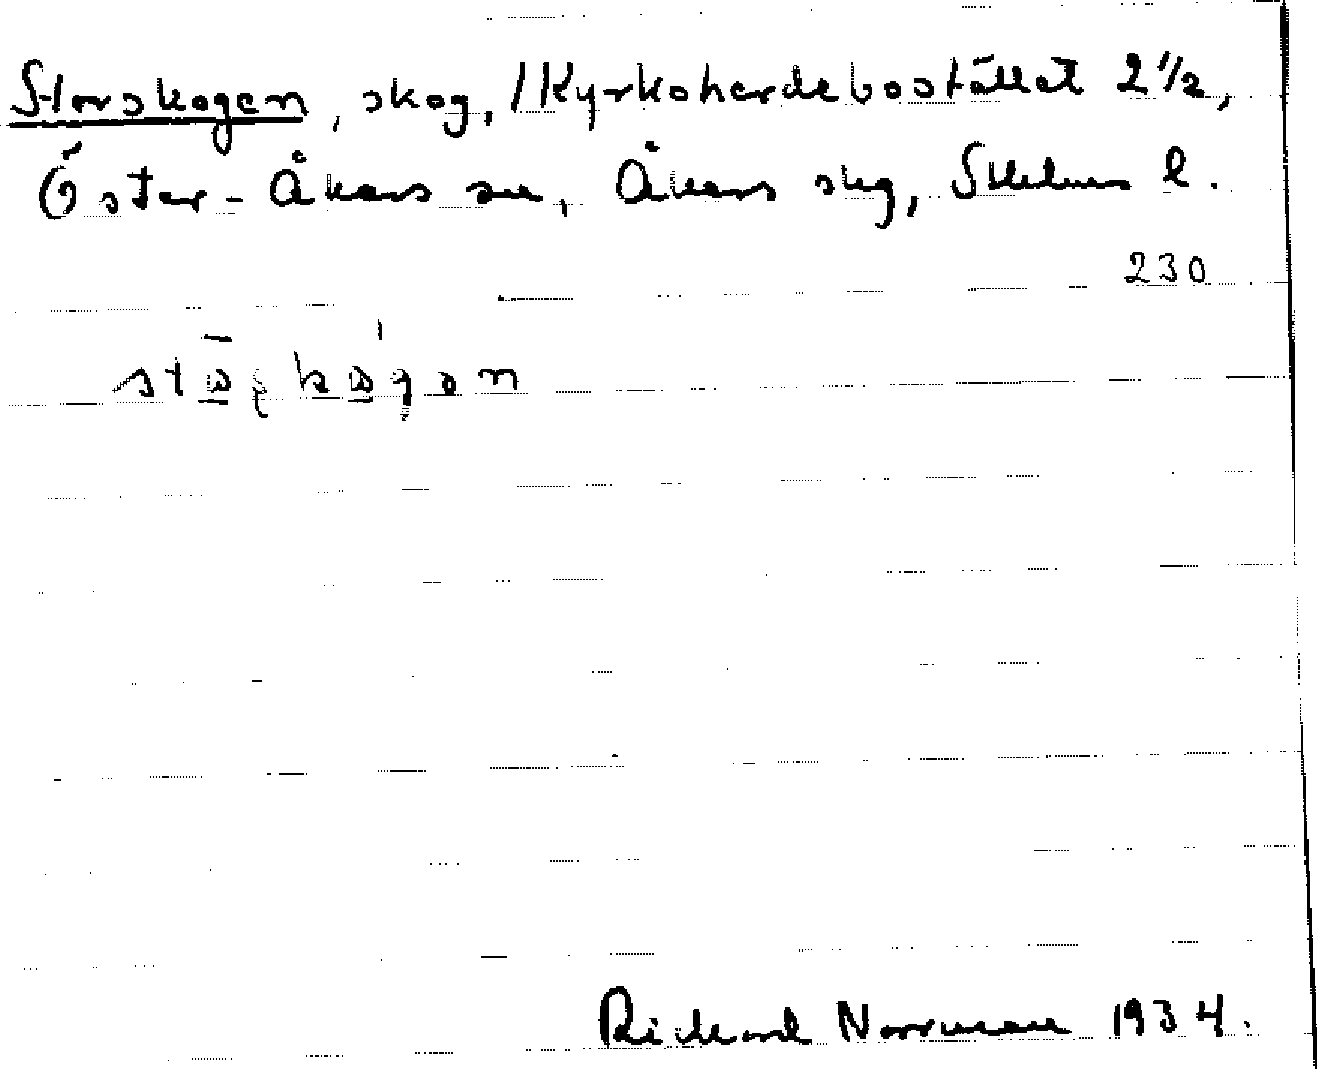 Storskogen, skog, / Kyrkoherdebostället 2 1/2,
Öster-Åkers sn, Åkers skg, Sthlms l.
230
Richard Norrman 1934.